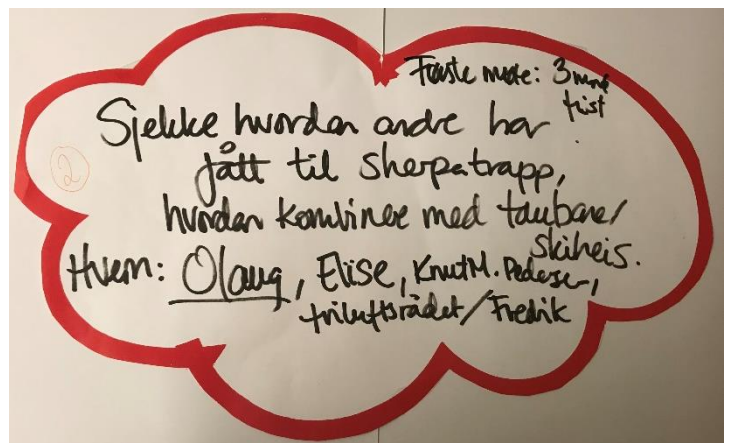 Første møte: 3 mnd
frist
Sjekke hvordan andre har
fått til sherpatrapp,
hvordan kombinere med taubane/
skiheis.
Hvem: Olaug, Elise, Knut M. Pedersen,
friluftsrådet/Fredrik
2